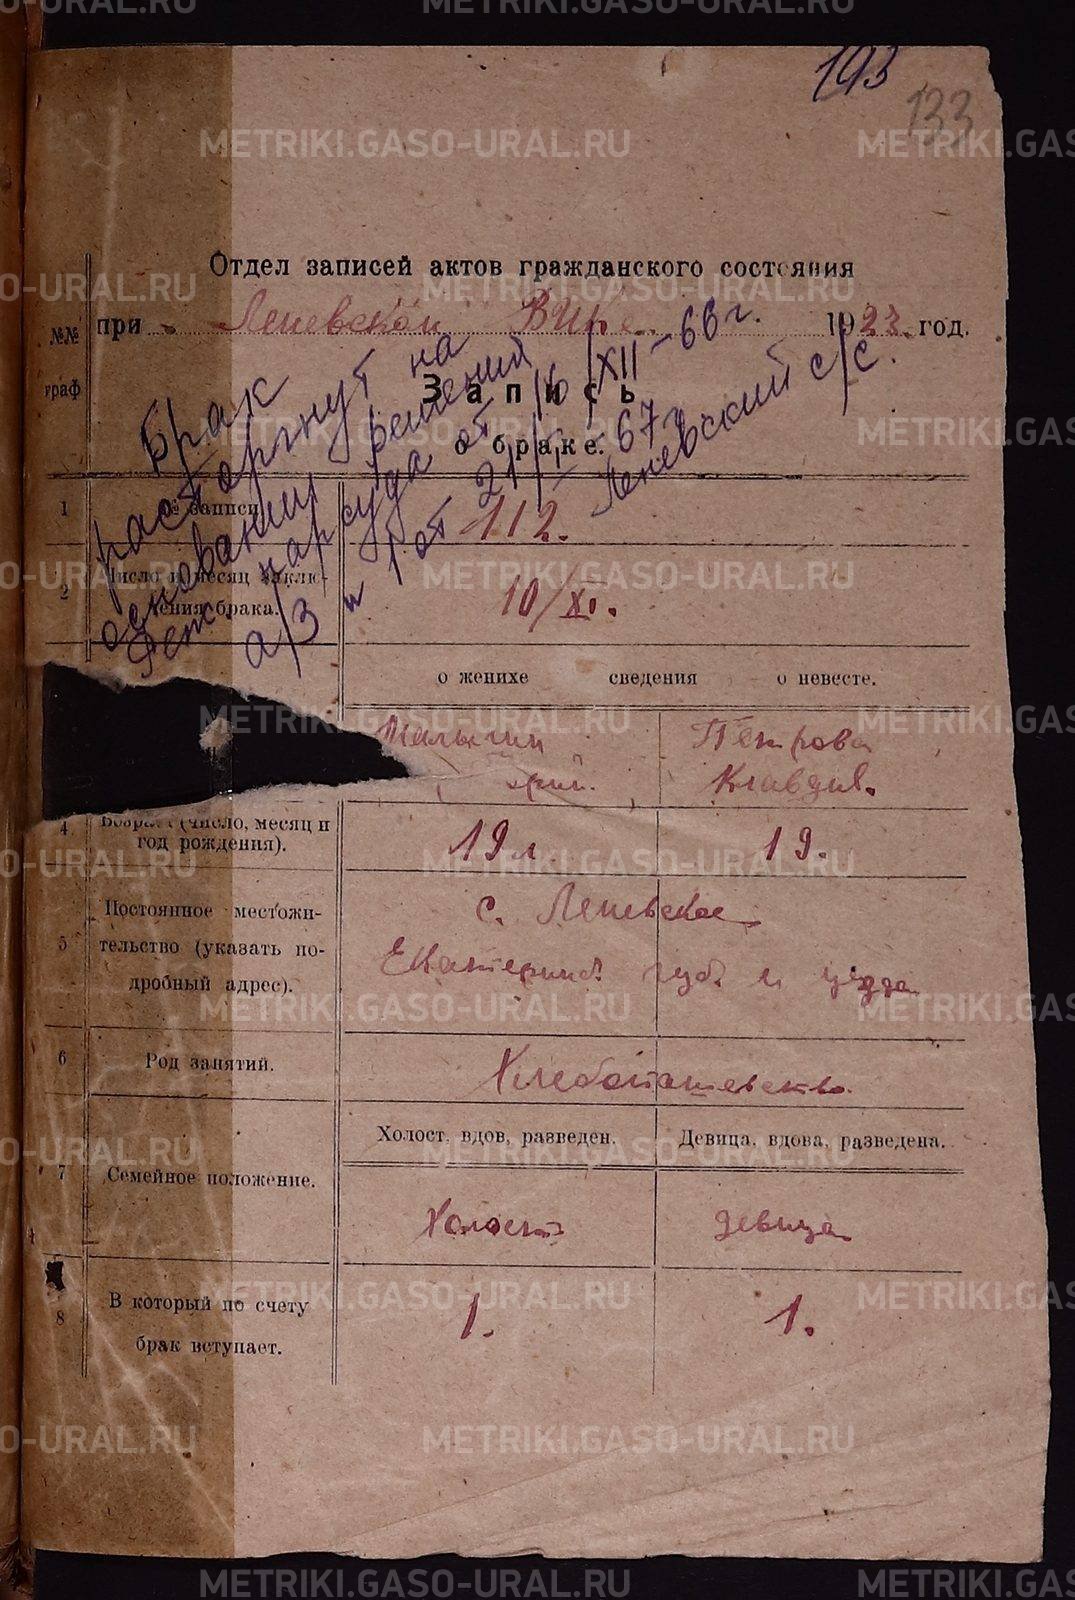 193
133
Отдел записей актов гражданского состояния
при Леневской ВИК'е 1923 год.
№№ граф
Запись
о браке.
Брак
расторгнут на
основании решения
Реж. нарсуда от 16/XII-66 г.
а/з № 1 от 21/I-67 г.
Леневский с/с.
1 № записи 112.
2 Число и месяц заклю-
чения брака. 10/XI.
о женихе сведения о невесте.
Малыгин Петрова
Клавдия.
4 Возраст (число, месяц и
год рождения). 19 л. 19.
5 Постоянное местожи-
тельство (указать по-
дробный адрес).
с. Леневское
Екатеринб. губ. и уезда
6 Род занятий. Хлебопашевство.
Холост, вдов, разведен. Девица, вдова, разведена.
7 Семейное положение.
Холост девица
8 В который по счету
брак вступает. 1. 1.
METRIKI.GASO-URAL.RU